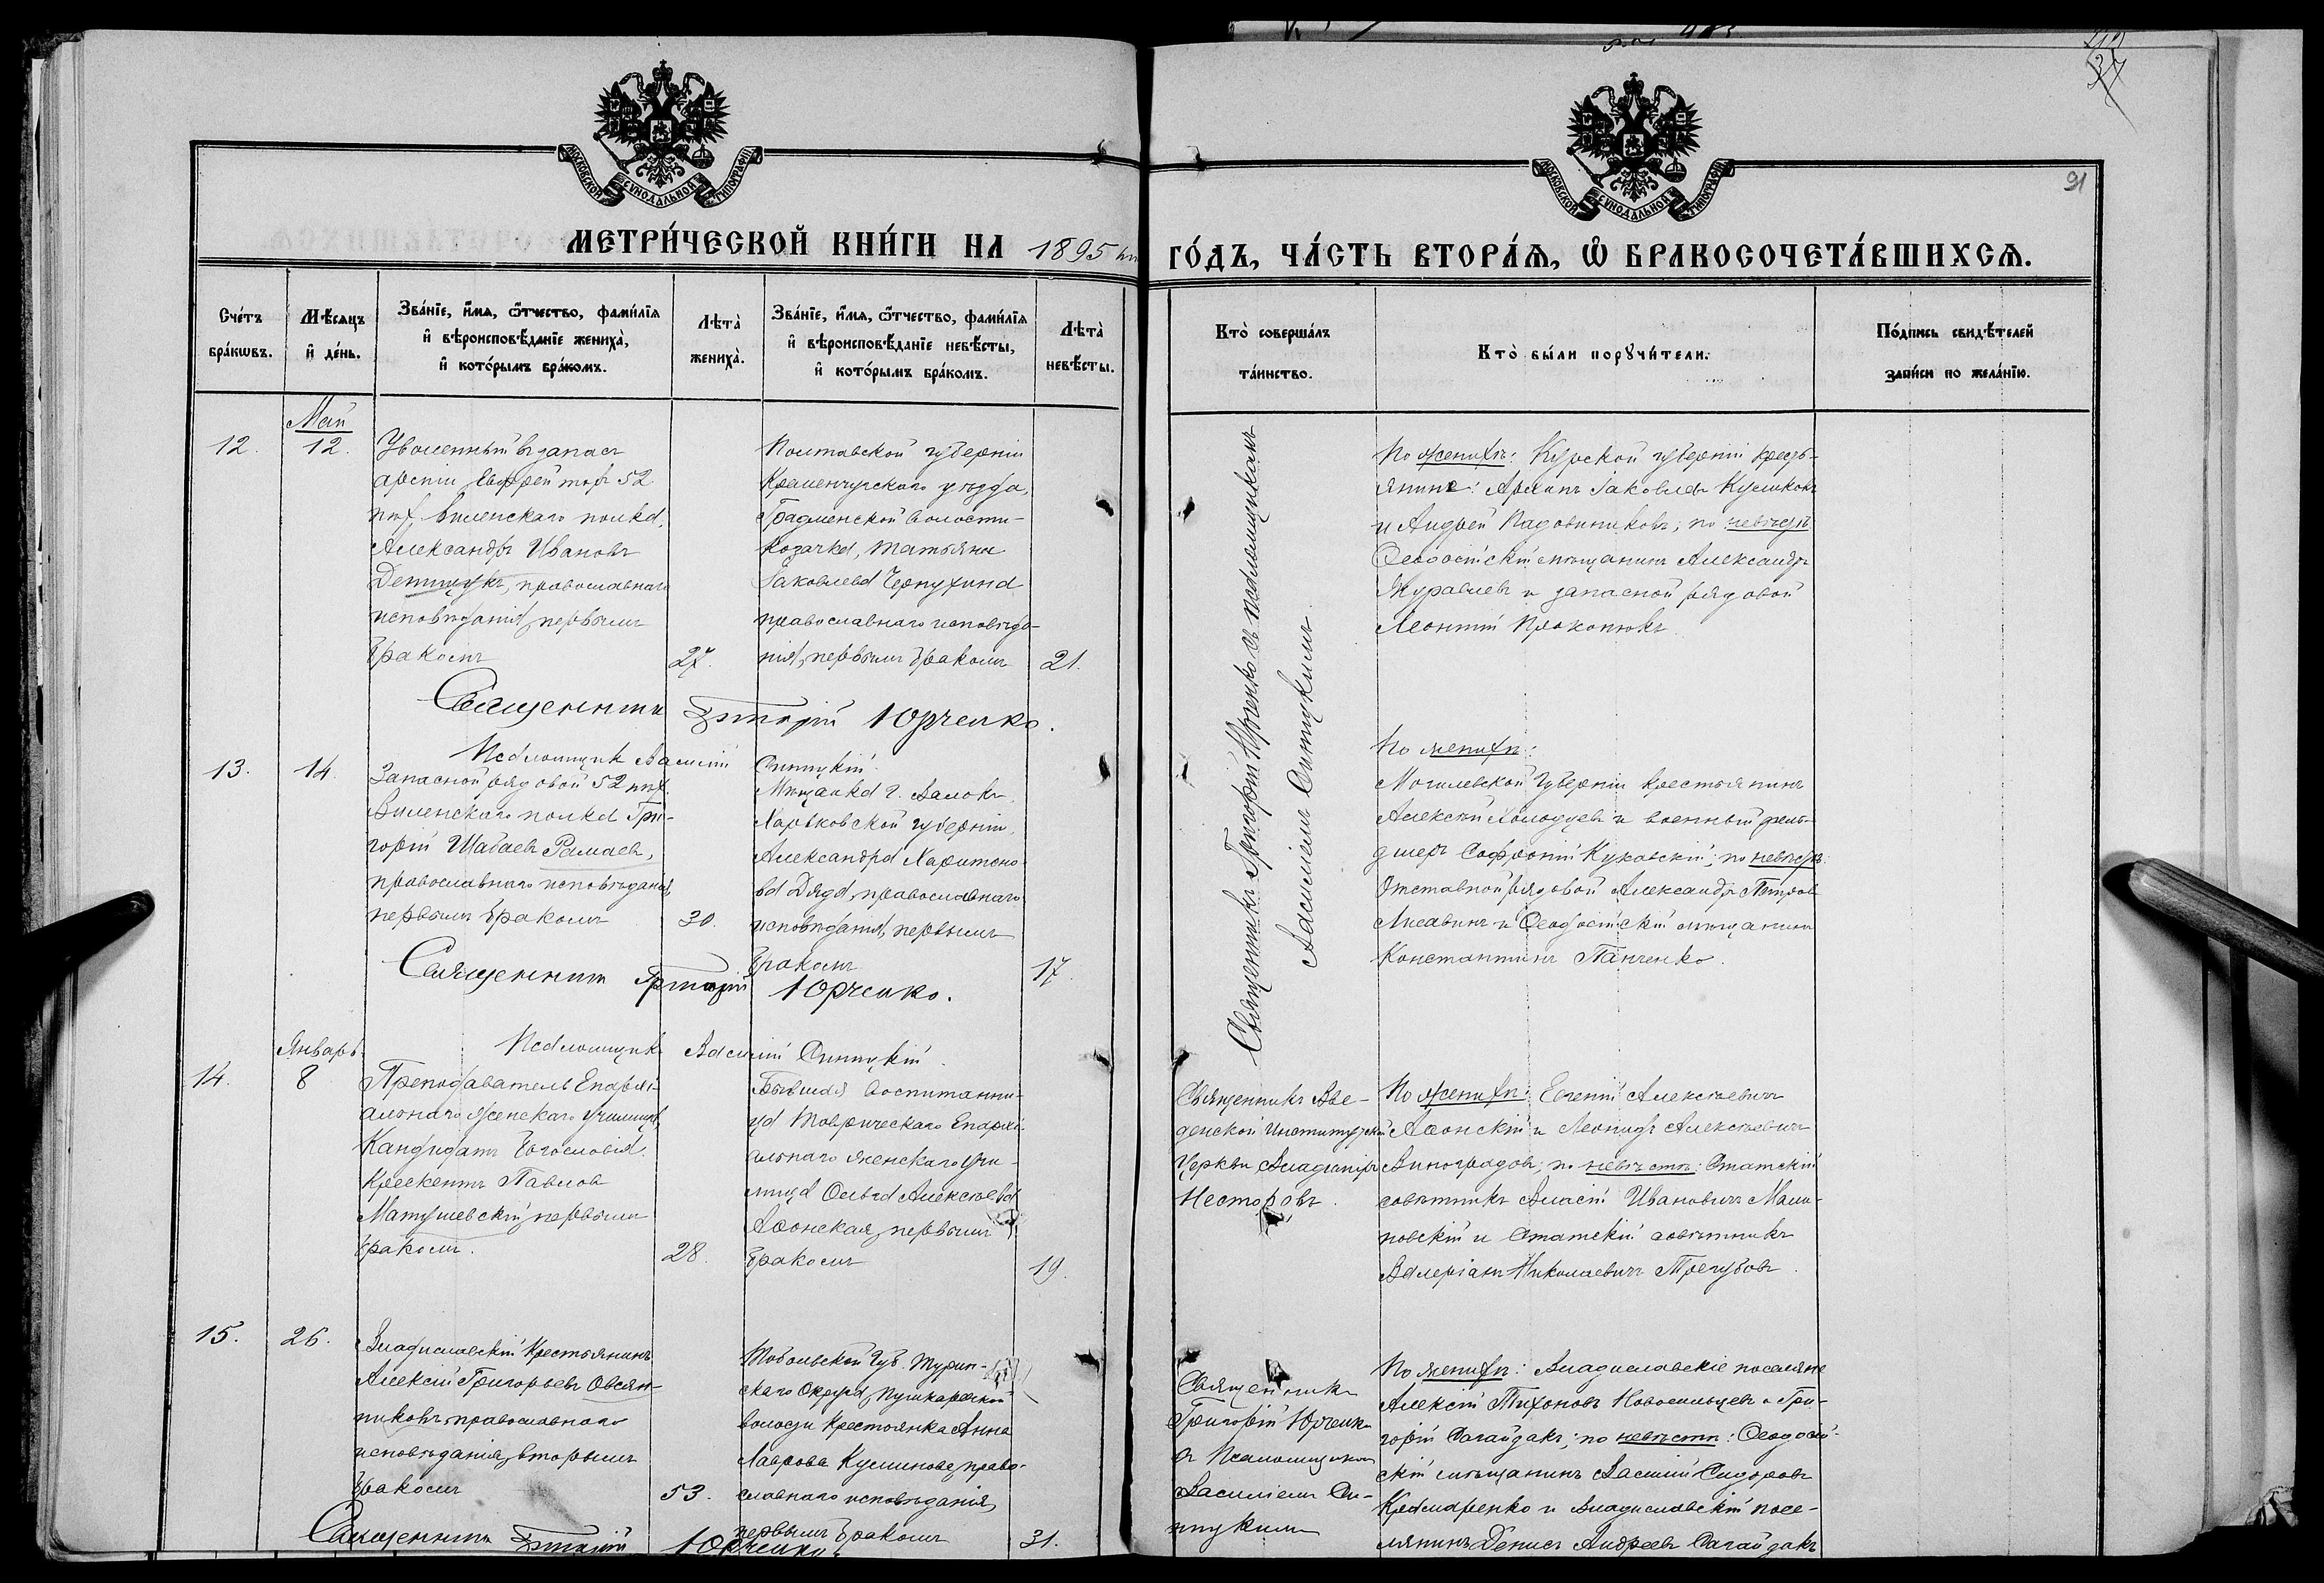 37
91
МОСКОВСКОЙ СѴНОДАЛЬНОЙ ТИПОГРАФІИ
МОСКОВСКОЙ СѴНОДАЛЬНОЙ ТИПОГРАФІИ
МЕТРИ́ЧЕСКОЙ КНИ́ГИ НА 1895
ГО́ДЪ, ЧА́СТЬ ВТОРА́Ѧ, Ѡ҆ БРАКОСОЧЕТА́ВШИХСѦ.
Сче́тъ
бра́кѡвъ.
Мѣ́сяцъ
и҆ де́нь.
Зва́нїе, и҆́мѧ, ѻ҆́тчество, фами́лїѧ
и҆ вѣроисповѣ́данїе жениха̀,
и҆ кото́рымъ бра́комъ.
Лѣта̀
жениха̀.
Зва́нїе, и҆́мѧ, ѻ҆́тчество, фами́лїѧ
и҆ вѣроисповѣ́данїе невѣ́сты,
и҆ кото́рымъ бра́комъ.
Лѣта̀
невѣ́сты.
Кто̀ соверша́лъ
та́инство.
Кто̀ бы́ли порꙋчи́тели.
По́дпись свидѣ́телей
за́писи по жела́нїю.
Май
12.
12.
Уволенный въ запасъ
арміи Ефрейторъ 52
пѣх. Виленскаго полка,
Александръ Ивановъ
православнаго
исповѣданія, первымъ
бракомъ
27.
Полтавской губерніи
Кременчугскаго уѣзда,
Градижской волости
козачка, Татьяна
Іаковлева
православнаго исповѣда-
нія, первымъ бракомъ
21.
Священникъ Григорій Юрченко съ псаломщикомъ
Василіемъ Синицкимъ
По женихѣ: Курской губерніи кресть-
янинъ: Архипъ Іаковлевъ
и Андрей по невѣстѣ
Ѳеодосійскій мѣщанинъ Александръ
Журавлевъ и запасной рядовой
Леонтій Прокопюкъ
Священникъ Григорій Юрченко.
Псаломщикъ Василій Синицкій.
13.
14.
Запасной рядовой 52 пѣх.
Виленскаго полка Гри-
горій Шабаевъ Рамаевъ,
православнаго исповѣданія,
первымъ бракомъ
30.
Мѣщанка г. Валокъ,
Харьковской губерніи,
Александра Харитоно-
ва Дядя, православнаго
исповѣданія, первымъ
бракомъ
17.
По женихѣ:
Могилевской губерніи крестьянинъ
Алексѣй Холодцевъ и военный фель-
дшеръ Софроній Куковскій; по невѣстѣ:
Отставной рядовой Александръ Петровъ
Лисавинъ и Ѳеодосійскій мѣщанинъ
Константинъ Панченко.
Священникъ Григорій Юрченко.
Псаломщикъ Василій Синицкій.
Январь
14.
8
Преподаватель Епархі-
альнаго женскаго училища,
Кандидатъ богословія,
Крескентъ Павловъ
Матушевскій, первымъ
бракомъ.
28.
Бывшая воспитанни-
ца Таврическаго Епархі-
альнаго женскаго учи-
лища Ольга Алексѣева
Аѳонская, первымъ
бракомъ
19.
Священникъ Вве-
денской Институтской
Церкви Владиміръ
Несторовъ.
По женихѣ: Евгеній Алексѣевичъ
Аѳонскій и Леонидъ Алексѣевичъ
Виноградовъ; по невѣстѣ: Статскій
совѣтникъ Власій Ивановичъ Мали-
новскій и Статскій совѣтникъ
Валеріанъ Николаевичъ Трегубовъ.
15.
26.
Владиславскій Крестьянинъ
Алексій Григорьевъ Овсян-
никовъ, православнаго
исповѣданія, вторымъ
бракомъ
53.
Тобольской Губ. Турин-
скаго Округа, Пушкаревской
волости Крестьянка Анна
Лаврова право-
славнаго исповѣданія,
первымъ бракомъ
31.
Священникъ
Григорій Юрченко
съ Псаломщикомъ
Василіемъ Си-
ницкимъ
По женихѣ: Владиславскіе поселяне
Алексій Тихоновъ Новосильцевъ и Гри-
горій Сагайдакъ; по невѣстѣ: Ѳеодосій-
скій мѣщанинъ Василій Сидоровъ
Крамаренко и Владиславскій посе-
лянинъ Денисъ Андреевъ Сагайдакъ
Священникъ Григорій Юрченко